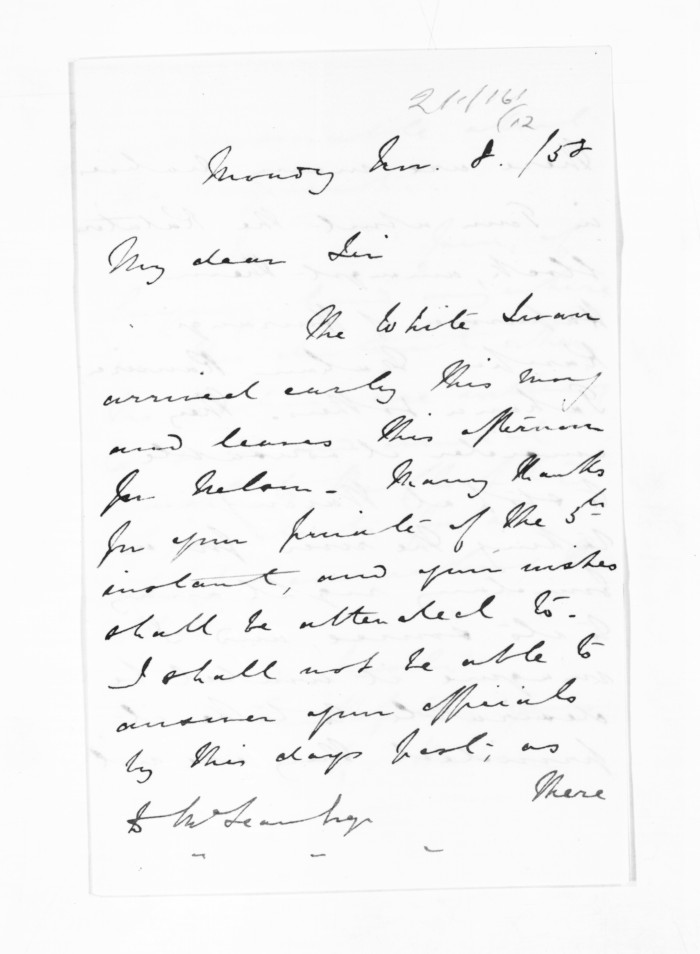 211/161
(12
Monday Nov. 8. /58
My dear Sir
The White Swan
arrived early this mong
and leaves this afternoon
for Nelson - Many thanks
for your private of the 5th
instant, and your wishes
shall be attended to -
I shall not be able to
answer your officials
by this days post, as
there
D McLean Esqr